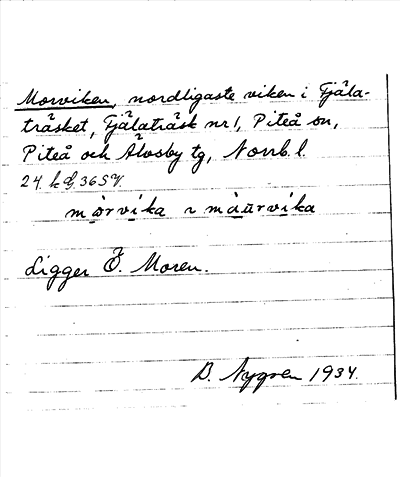 Morviken, nordligaste viken i Fjäla-
träsket, Fjälaträsk nr 1, Piteå sn,
Piteå och Älvsby tg, Norrb. l.
24. k d, 36 S V.
mörvika ~ màurvika
Ligger Ö. Moren.
B. Nygren 1934.